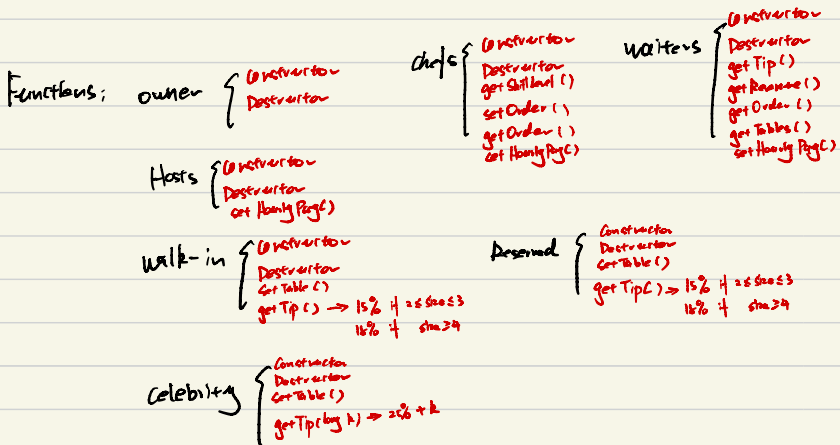 Functions:
owner
Constructor
Destructor
chefs
Constructor
Destructor
get Skill level ()
set Order ()
get Order ()
set Hourly Pay()
waiters
Constructor
Destructor
get Tip ()
get Revenue ()
get Order ()
get Tables ()
set Hourly Pay()
Hosts
Constructor
Destructor
set Hourly Pay()
walk-in
Constructor
Destructor
set Table ()
get Tip () → 15% if 2≤size≤3
18% if size≥4
Reserved
Constructor
Destructor
set Table ()
get Tip() → 15% if 2≤size≤3
18% if size≥4
Celebrity
Constructor
Destructor
set Table ()
get Tip(long k) → 25% + k